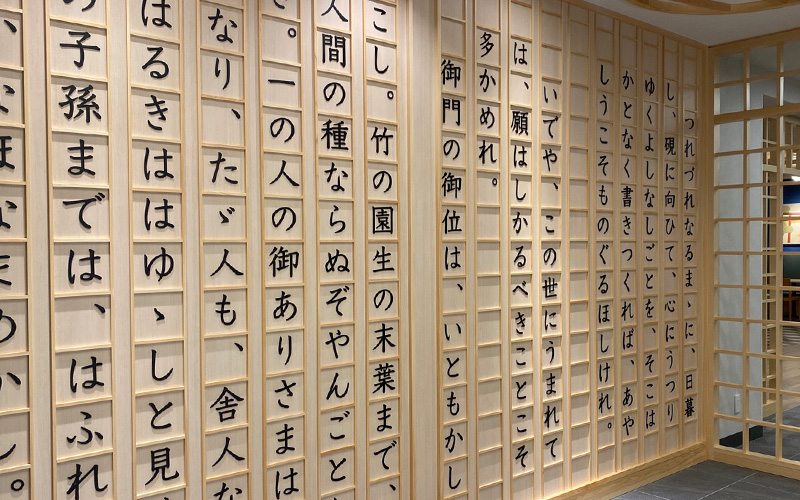 つれづれなるまゝに、日暮
し、硯に向ひて、心にうつり
ゆくよしなしごとを、そこは
かとなく書きつくれば、あや
しうこそものぐるほしけれ。
いでや、この世にうまれて
は、願はしかるべきことこそ
多かめれ。
御門の御位は、いともかし
こし。竹の園生の末葉まで、
人間の種ならぬぞやんごと
き。一の人の御ありさまは
なり、たゞ人も、舎人な
はるきははゆゝしと見
の子孫までは、はふれ
、なほなまめかし。